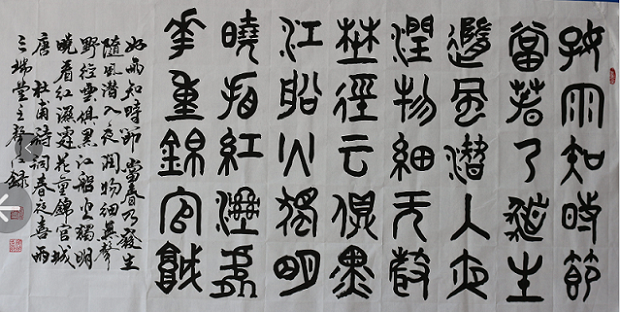 好雨知時節
當春乃發生
隨風潛入夜
潤物細无聲
埜徑云俱黑
江船火獨明
曉看紅濕處
花重錦官城
好雨知時節 當春乃發生
隨風潛入夜 潤物細無聲
野徑雲俱黑 江船火獨明
曉看紅濕處 花重錦官城
唐 杜甫詩詞春夜喜雨
堂主 錄